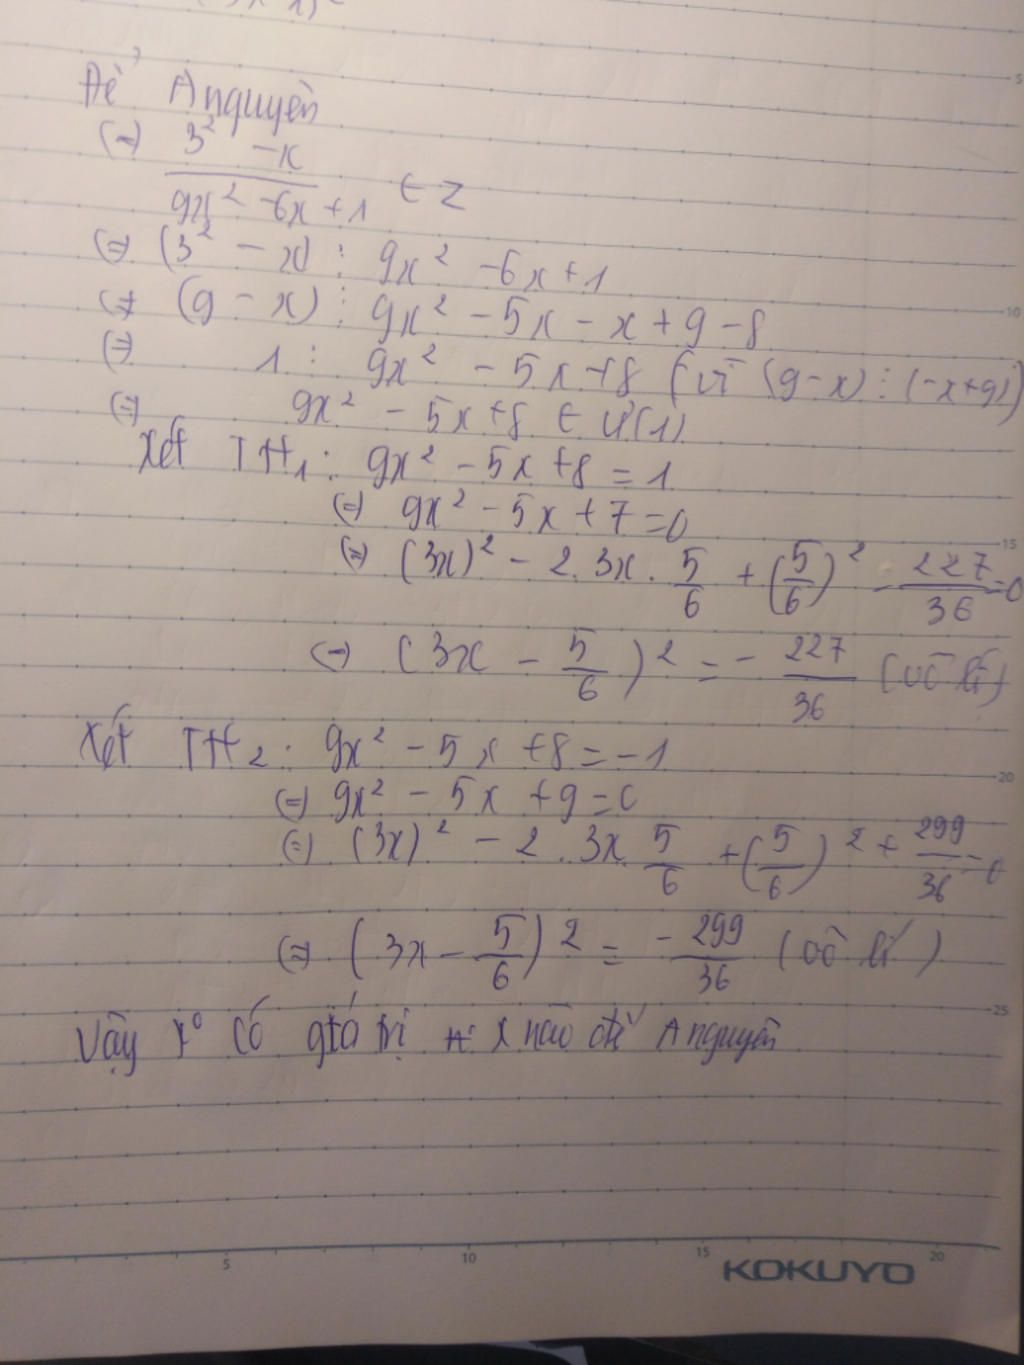 Để A nguyên
(=) 3² - x / 9x² - 6x + 1 ∈ Z
(=) (3² - x) ⋮ 9x² - 6x + 1
(=) (9 - x) ⋮ 9x² - 5x - x + 9 - 8
(=) 1 ⋮ 9x² - 5x + 8 (vì (9-x) ⋮ (-x+9))
(=) 9x² - 5x + 8 ∈ Ư(1)
Xét TH₁: 9x² - 5x + 8 = 1
(=) 9x² - 5x + 7 = 0
(=) (3x)² - 2.3x. 5/6 + (5/6)² - 227/36 = 0
(=) (3x - 5/6)² = - 227/36 (vô lí)
Xét TH₂: 9x² - 5x + 8 = -1
(=) 9x² - 5x + 9 = 0
(=) (3x)² - 2.3x 5/6 + (5/6)² + 299/36 = 0
(=) (3x - 5/6)² = - 299/36 (vô lí)
Vậy k° có giá trị x nào để A nguyên
5
10
15
20
25
5
10
15
20
KOKUYO